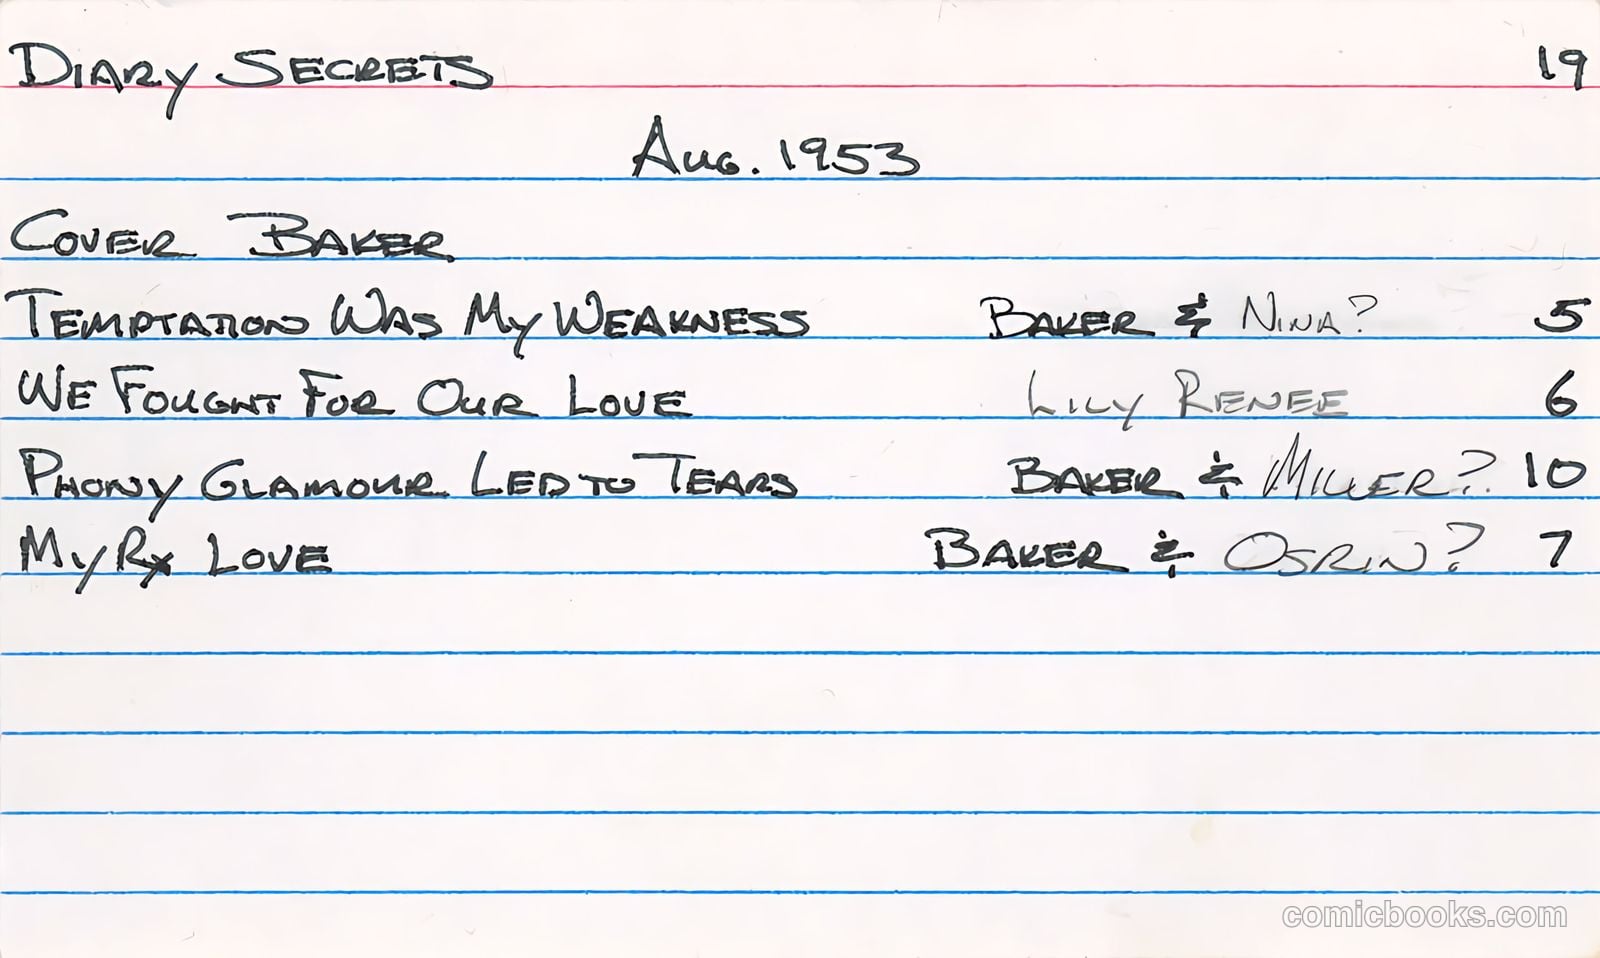 Diary Secrets 19
Aug. 1953
Cover Baker
Temptation Was My Weakness Baker & Nina? 5
We Fought For Our Love Lily Renee 6
Phony Glamour Led to Tears Baker & Miller? 10
My Rx Love Baker & Osrin? 7
comicbooks.com